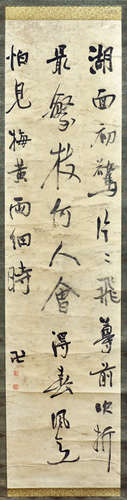 湖面初驚片〻飛尊前吹折
最繁枝何人會得春風意
怕見梅黃雨細時